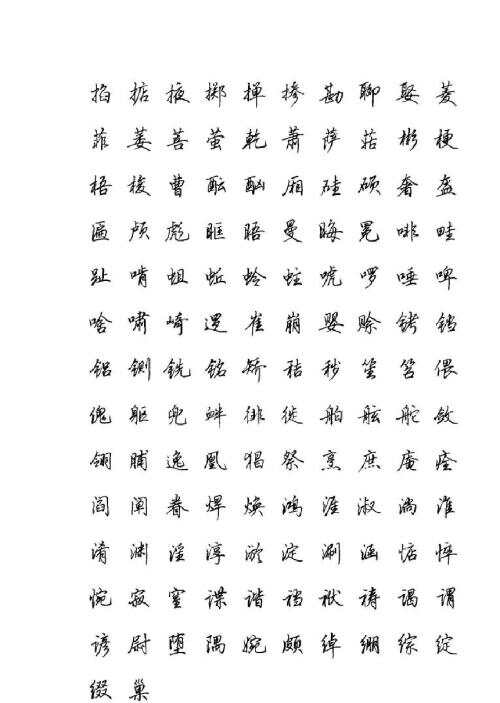 掐掂掖掷掸掺勘聊娶菱
菲萎菩萤乾萧萨菇彬梗
梧梭曹酝酗厢硅硕奢盔
匾颅彪眶晤曼晦冕啡畦
趾啃蛆蚯蛉蛀唬啰唾啤
啥啸崎逻崔崩婴赊铐铛
铝铡铣铭矫秸秽笙笤偎
傀躯兜衅徘徙舶舷舵敛
翎脯逸凰猖祭烹庶庵痊
阎阐眷焊焕鸿涯淑淌淮
淆渊淫淳淤淀涮涵惦悴
惋寂窒谍谐裆袱祷谒谓
谚尉堕隅婉颇绰绷综绽
缀巢